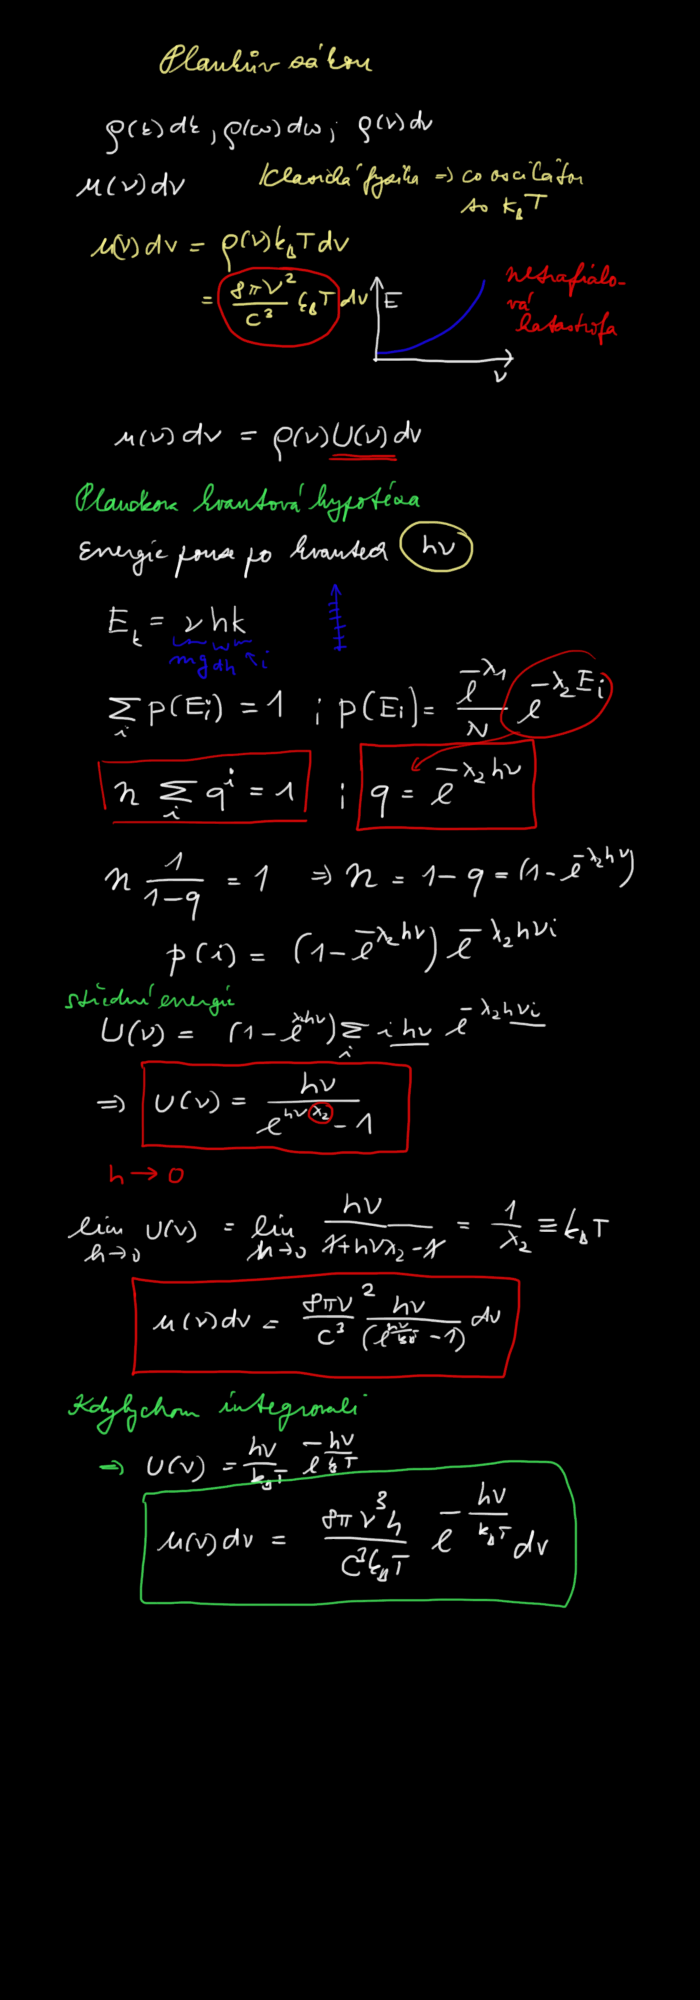 Planckův zákon
ρ(k)dk, ρ(ω)dω; ρ(ν)dν
u(ν)dν
Klasická fyzika => co oscilátor
to k_BT
u(ν)dν = ρ(ν)k_BTdν
= 8πν²/c³ k_BT dν
E
ν
ultrafialo-
vá
katastrofa
u(ν)dν = ρ(ν)U(ν)dν
Planckova kvantová hypotéza
Energie pouze po kvantech hν
E_k = νhk
i
∑_i p(E_i) = 1 ; p(E_i) = e^{-λ_1}/N e^{-λ_2E_i}
n ∑_i q^i = 1 ; q = e^{-λ_2hν}
n 1/(1-q) = 1 => n = 1-q = (1-e^{-λ_2hν})
p(i) = (1-e^{-λ_2hν}) e^{-λ_2hνi}
střední energie
U(ν) = (1-e^{λ_2hν})∑_i ihν e^{-λ_2hνi}
=> U(ν) = hν/(e^{hνλ_2}-1)
h → 0
lim_{h→0} U(ν) = lim_{h→0} hν/(1+hνλ_2-1) = 1/λ_2 ≡ k_BT
u(ν)dν = 8πν²/c³ hν/(e^{hν/k_BT}-1) dν
Kdybychom integrovali
=> U(ν) = hν/k_BT e^{-hν/k_BT}
u(ν)dν = 8πν³h/c³k_BT e^{-hν/k_BT} dν